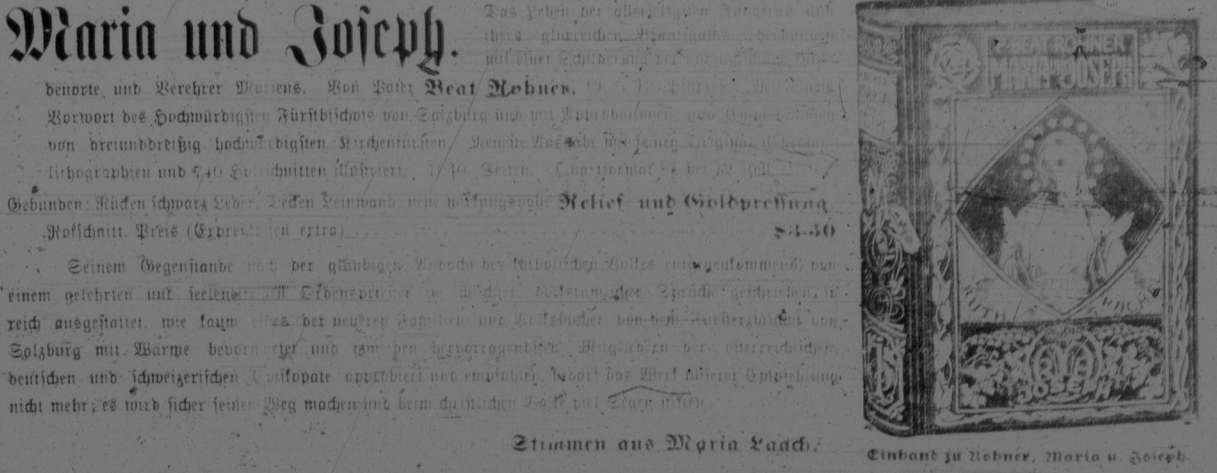 Maria und Joseph.
Das Leben der allerseligsten Jungfrau und
ihres glorreichen Bräutigams
mit einer Schilderung der
denorte und Verehrer Mariens. Von Pater Beat Rohner,
Vorwort des Hochwürdigsten Fürstbischofs von Salzburg und mit Approbationen und Empfehlungen
von dreiunddreißig hochwürdigsten Kirchenfürsten. Neueste Ausgabe mit feinen
lithographien und 740 Holzschnitten illustriert. Seiten. Quartformat bei 12 Zoll.
Gebunden: Rücken schwarz Leder, Decken Leinwand, neue wirkungsvolle Relief- und Goldpressung
Rotschnitt. Preis (Expreßkosten extra) $3.50
Seinem Gegenstande nach der gläubigen Andacht des katholischen Volkes entgegenkommend, von
einem gelehrten und Ordenspriester in volkstümlicher Sprache geschrieben, so
reich ausgestattet, wie kaum eines der neueren Familien- und Volksbücher, von dem Fürsterzbischof von
Salzburg mit Wärme bevorwortet und von den hervorragendsten Mitgliedern des österreichischen,
deutschen und schweizerischen Episkopats approbiert und empfohlen, bedarf das Werk unserer Empfehlung
nicht mehr; es wird sicher seinen Weg machen und beim christlichen Volke viel Segen stiften.
Stimmen aus Maria Laach.
P. BEAT ROHNER
MARIA UND JOSEPH
MARIA
JOSEPH
Einband zu Rohner, Maria u. Joseph.